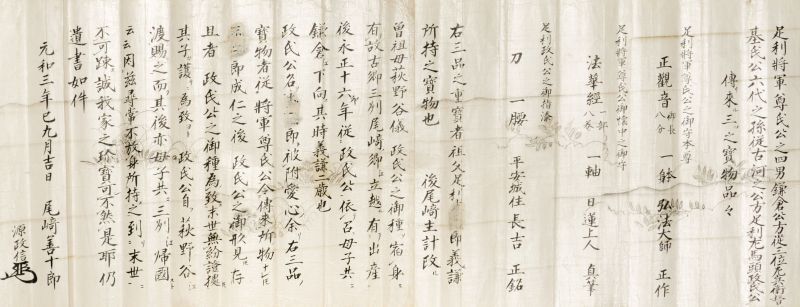 足利将軍尊氏公之四男鎌倉公方従三位左兵衛督
基氏公六代之孫従古河之公方足利左馬頭政氏公
傳来ニ三之寶物品々
足利将軍尊氏公之御守本尊
正觀音 御長八分 一躰 弘法大師 正作
足利将軍尊氏公御懐中之御守
法華經 一部八巻 一軸 日蓮上人 真筆
足利政氏公之御指添
刀 一腰 平安城住長吉 正銘
右三品之重寶者祖父足利 即義謙
所持之寶物也 後尾崎主計政
曽祖母萩野谷儀 政氏公之御種ヲ宿ㇾ身ニ
有故古郷三列尾崎郷ニ立越ㇾ有ニ出産一
後永正十六年従ニ政氏公ㇾ依ㇾ召母子共ニ
鎌倉ニ下向ㇾ其時義謙二歳也
政氏公名 即被附愛心余ㇾ右三品ノ
寶物者従 将軍尊氏公令傳来所物
且者 政氏公之御種為致末世無紛證據
即成仁之後 政氏公之御形見ニ存
其子ニ護ㇾ為致 政氏公自ニ萩野谷ㇾ江
渡賜之而ㇾ其後亦母子共ニ三列ㇾ江歸國
云云因茲尋常不放身所持之到ニ末世ニ
不可踈ㇾ誠我家之珍寶可不然是耶仍
遺書如件
元和三年巳九月吉日 尾崎善十郎
源政信